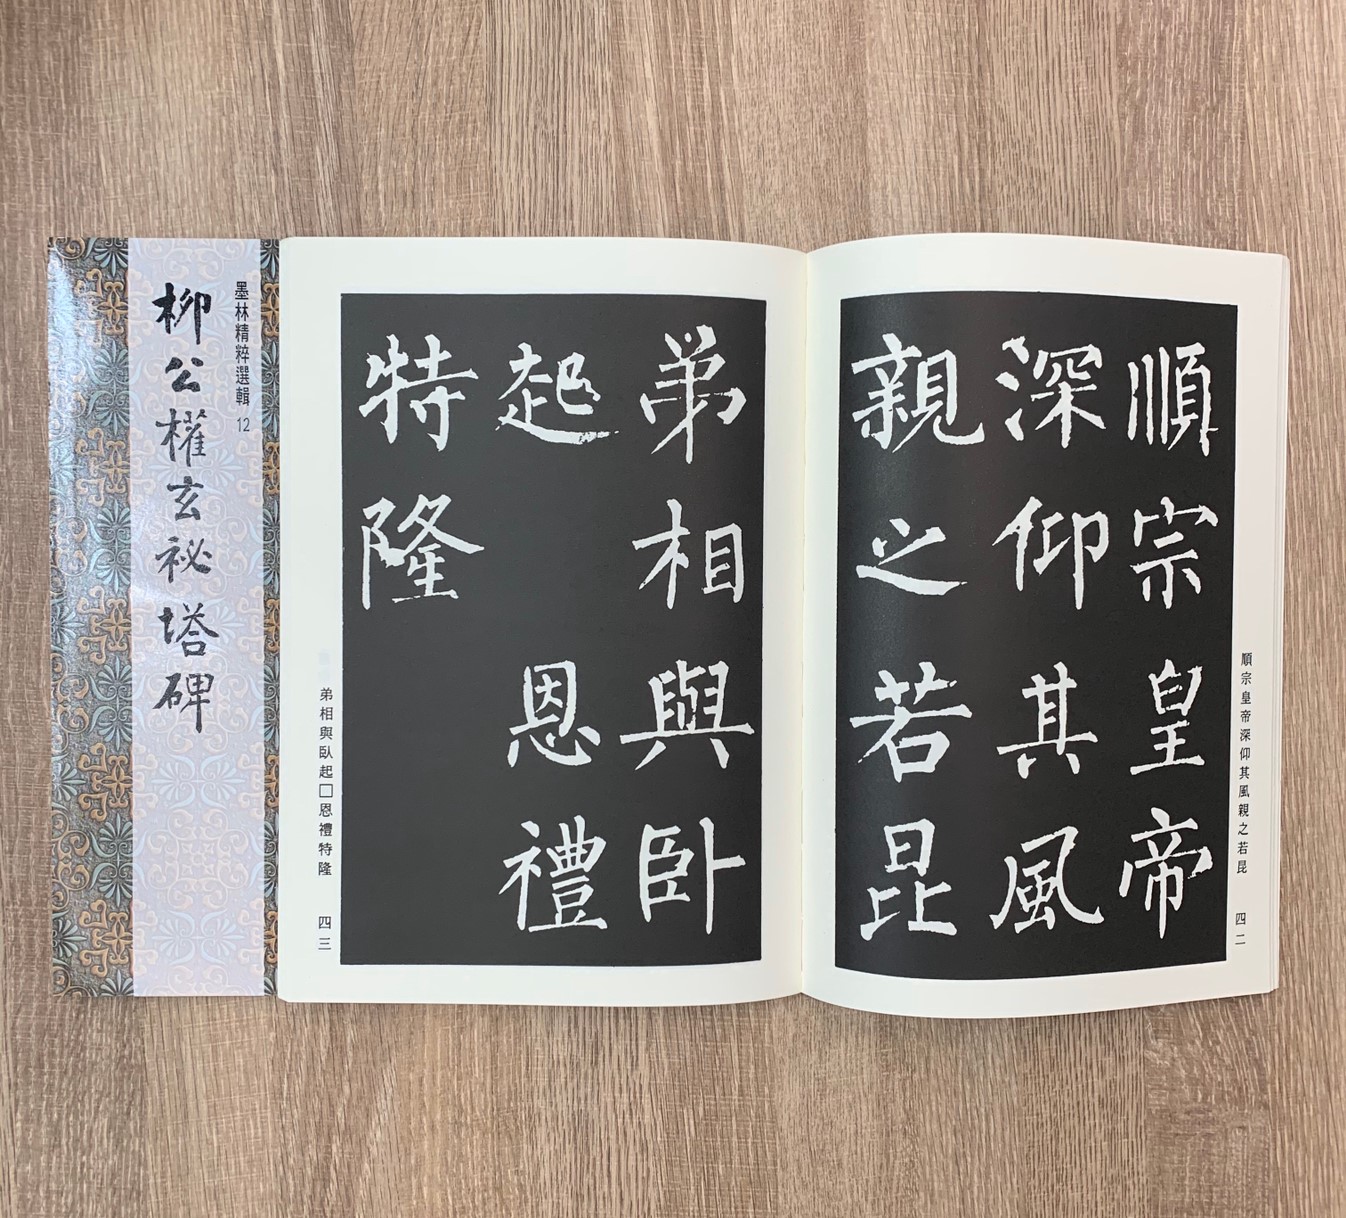 墨林精粹選輯 12
柳公權玄祕塔碑
順宗皇帝
深仰其風
親之若昆
順宗皇帝深仰其風親之若昆
四二
弟相與臥
起 恩禮
特隆
弟相與臥起□恩禮特隆
四三